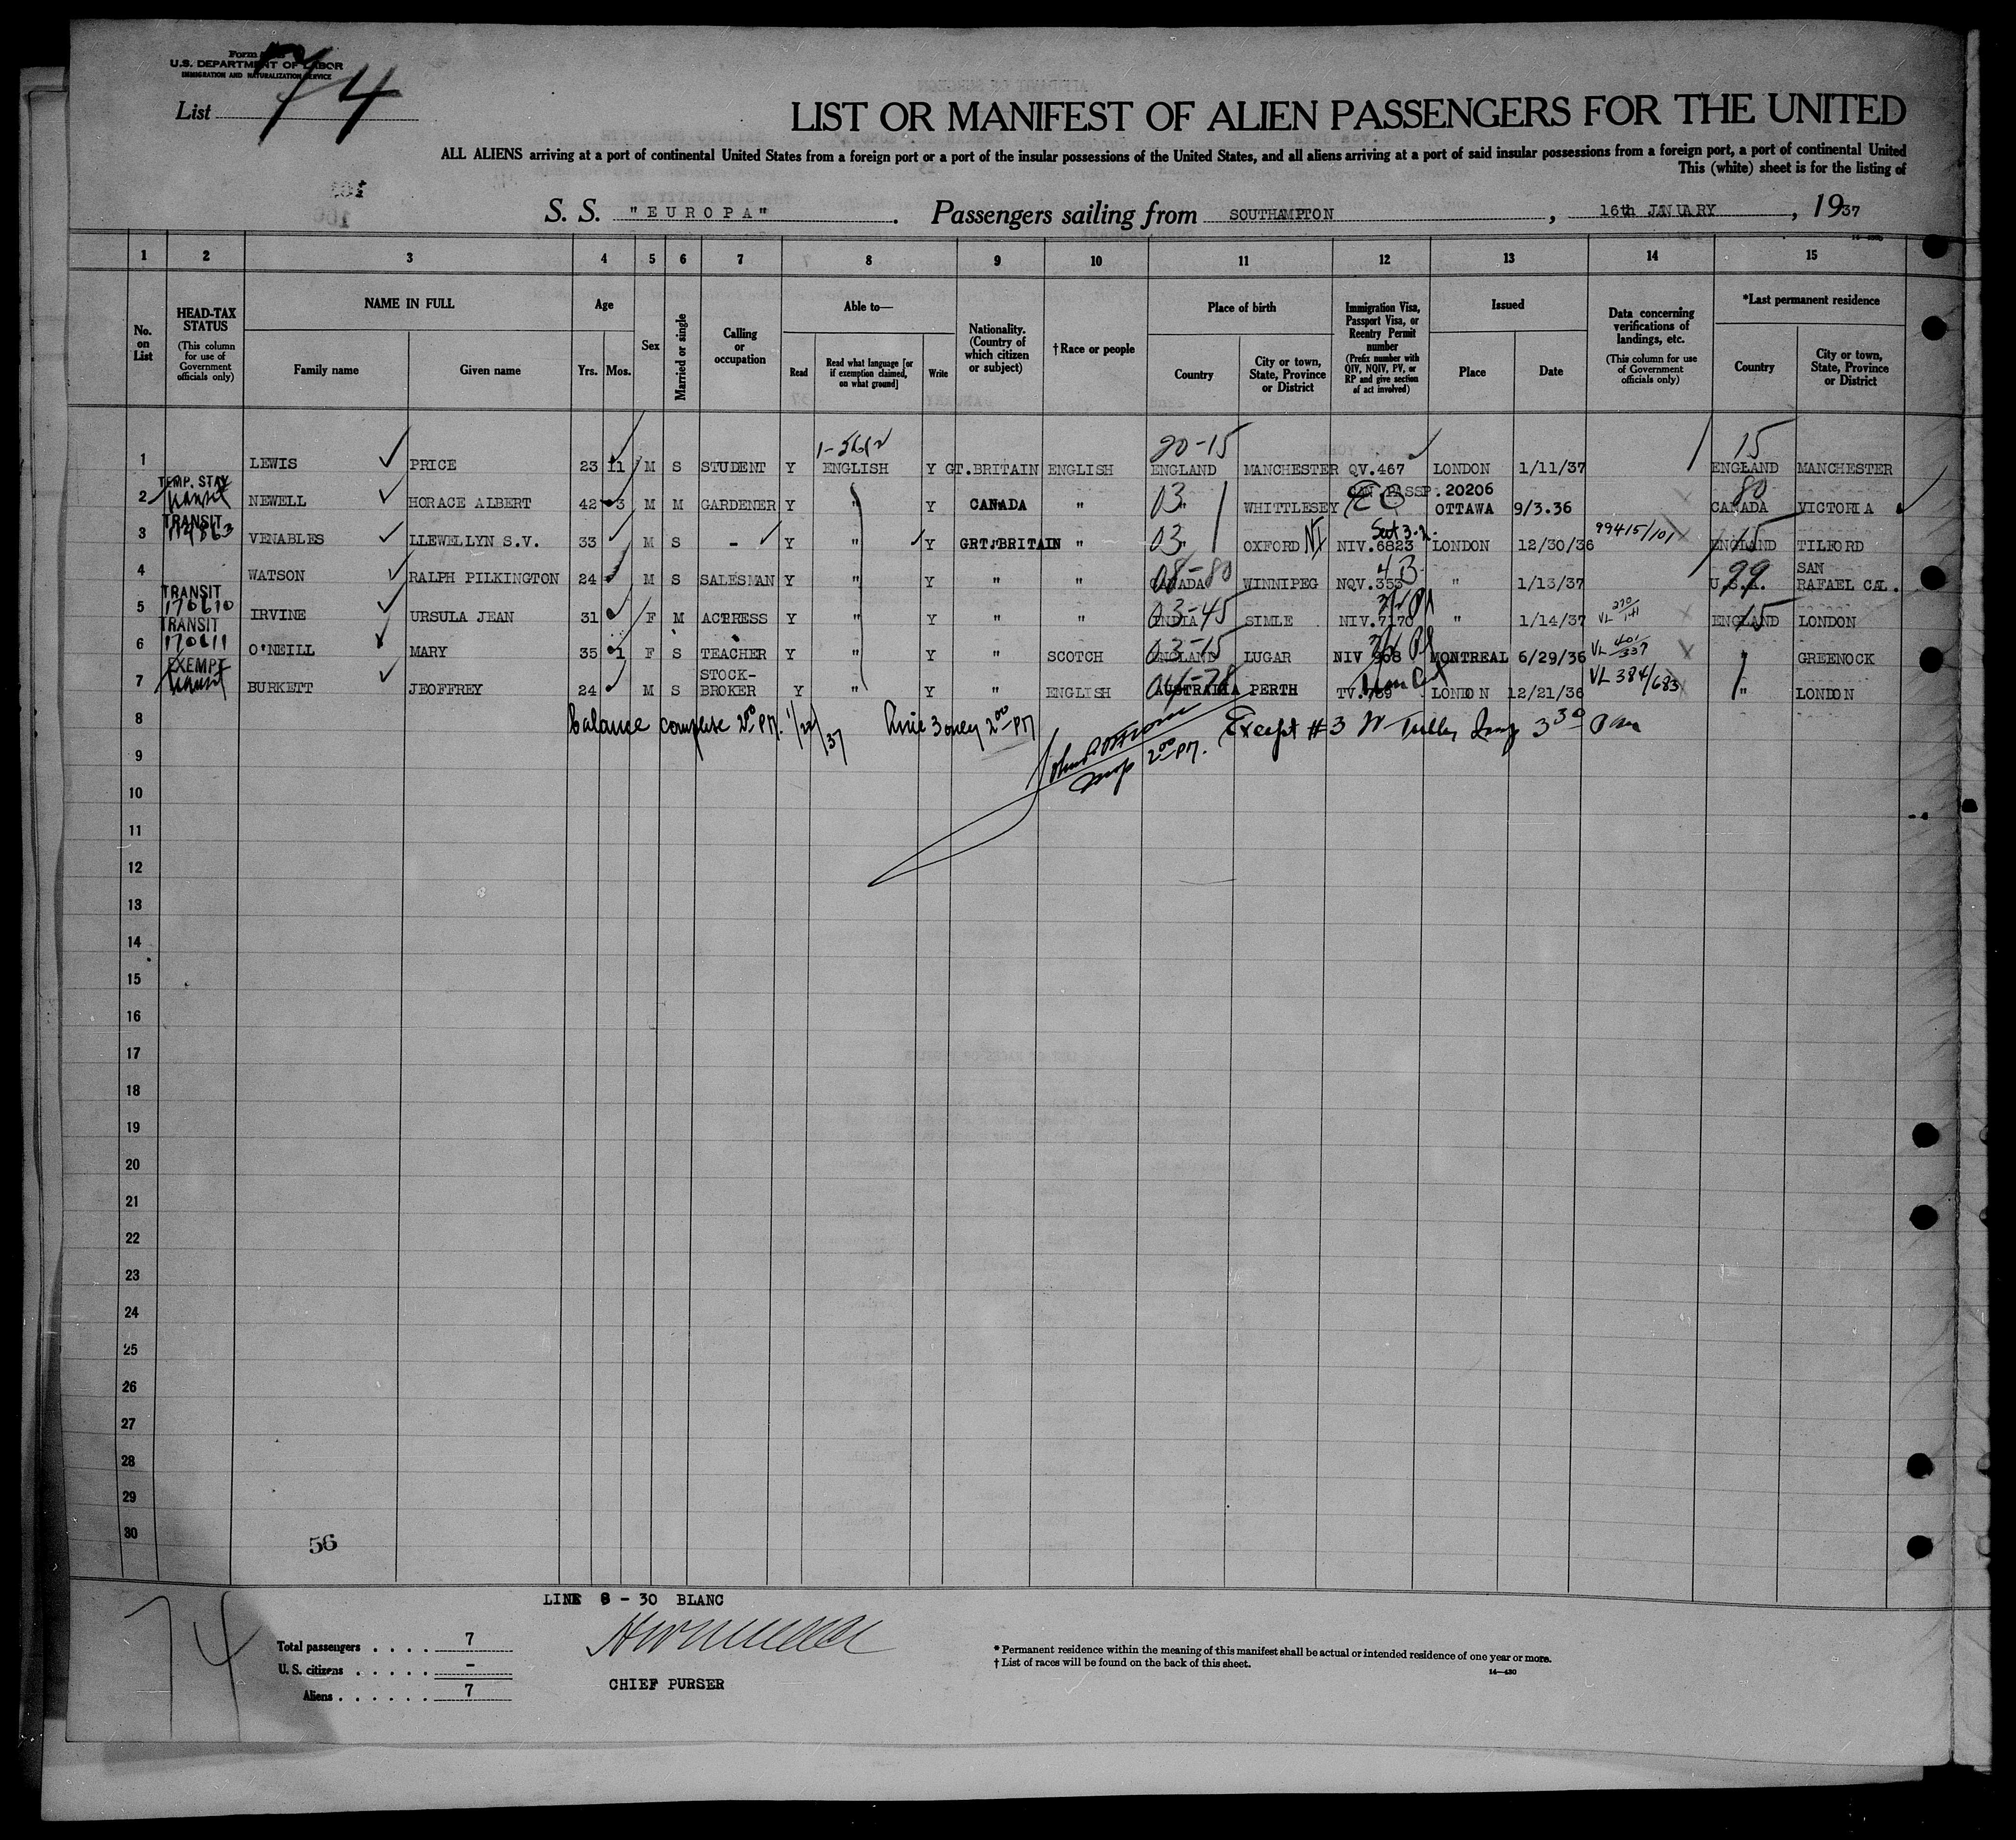 Form
U.S. DEPARTMENT OF LABOR
IMMIGRATION AND NATURALIZATION SERVICE
List 74
LIST OR MANIFEST OF ALIEN PASSENGERS FOR THE UNITED
ALL ALIENS arriving at a port of continental United States from a foreign port or a port of the insular possessions of the United States, and all aliens arriving at a port of said insular possessions from a foreign port, a port of continental United
This (white) sheet is for the listing of
S. S. "EUROPA". Passengers sailing from SOUTHAMPTON, 16th JANUARY, 1937
1 2 3 4 5 6 7 8 9 10 11 12 13 14 15
No. on List
HEAD-TAX STATUS (This column for use of Government officials only)
NAME IN FULL
Family name Given name
Age
Yrs. Mos.
Sex
Married or single
Calling or occupation
Able to—
Read
Read what language [or if exemption claimed, on what ground]
Write
Nationality. (Country of which citizen or subject)
†Race or people
Place of birth
Country
City or town, State, Province or District
Immigration Visa, Passport Visa, or Reentry Permit number (Prefix number with QIV, NQIV, PV, or RP and give section of act involved)
Issued
Place Date
Data concerning verifications of landings, etc. (This column for use of Government officials only)
*Last permanent residence
Country
City or town, State, Province or District
1-5612 20-15 15
1 LEWIS PRICE 23 11 M S STUDENT Y ENGLISH Y GT.BRITAIN ENGLISH ENGLAND MANCHESTER QV.467 LONDON 1/11/37 ENGLAND MANCHESTER
TEMP. STAY CAN PASSP. 20206 80
2 transit NEWELL HORACE ALBERT 42 3 M M GARDENER Y " Y CANADA " 03 " WHITTLESEY OTTAWA 9/3.36 CANADA VICTORIA
TRANSIT Sect 3-2. 99415/101 15
3 119863 VENABLES LLEWELLYN S.V. 33 M S - Y " Y GRT.BRITAIN " 03 " OXFORD NIV.6823 LONDON 12/30/36 ENGLAND TILFORD
08-80 4B 99 SAN
4 WATSON RALPH PILKINGTON 24 M S SALESMAN Y " Y " " CANADA WINNIPEG NQV.353 " 1/13/37 U.S.A. RAFAEL CAL.
TRANSIT 03-45 VL 270/141 15
5 170610 IRVINE URSULA JEAN 31 F M ACTRESS Y " Y " " INDIA SIMLE NIV.7170 " 1/14/37 ENGLAND LONDON
TRANSIT 03-15 VL 401/337
6 170611 O'NEILL MARY 35 1 F S TEACHER Y " Y " SCOTCH ENGLAND LUGAR NIV 968 MONTREAL 6/29/36 " GREENOCK
EXEMPT STOCK- 04-78 VL 384/683
7 transit BURKETT JEOFFREY 24 M S BROKER Y " Y " ENGLISH AUSTRALIA PERTH TV.789 LONDON 12/21/36 " LONDON
8 balance complete 2 00 PM. 1/22/37 Line 3 only 2 00 PM Except #3 3 30 Pm
2 00 PM.
9
10
11
12
13
14
15
16
17
18
19
20
21
22
23
24
25
26
27
28
29
30
56
LINE 8 - 30 BLANC
74
Total passengers . . . . 7
U. S. citizens . . . . . -
Aliens . . . . . . 7
CHIEF PURSER
* Permanent residence within the meaning of this manifest shall be actual or intended residence of one year or more.
† List of races will be found on the back of this sheet.
14—430